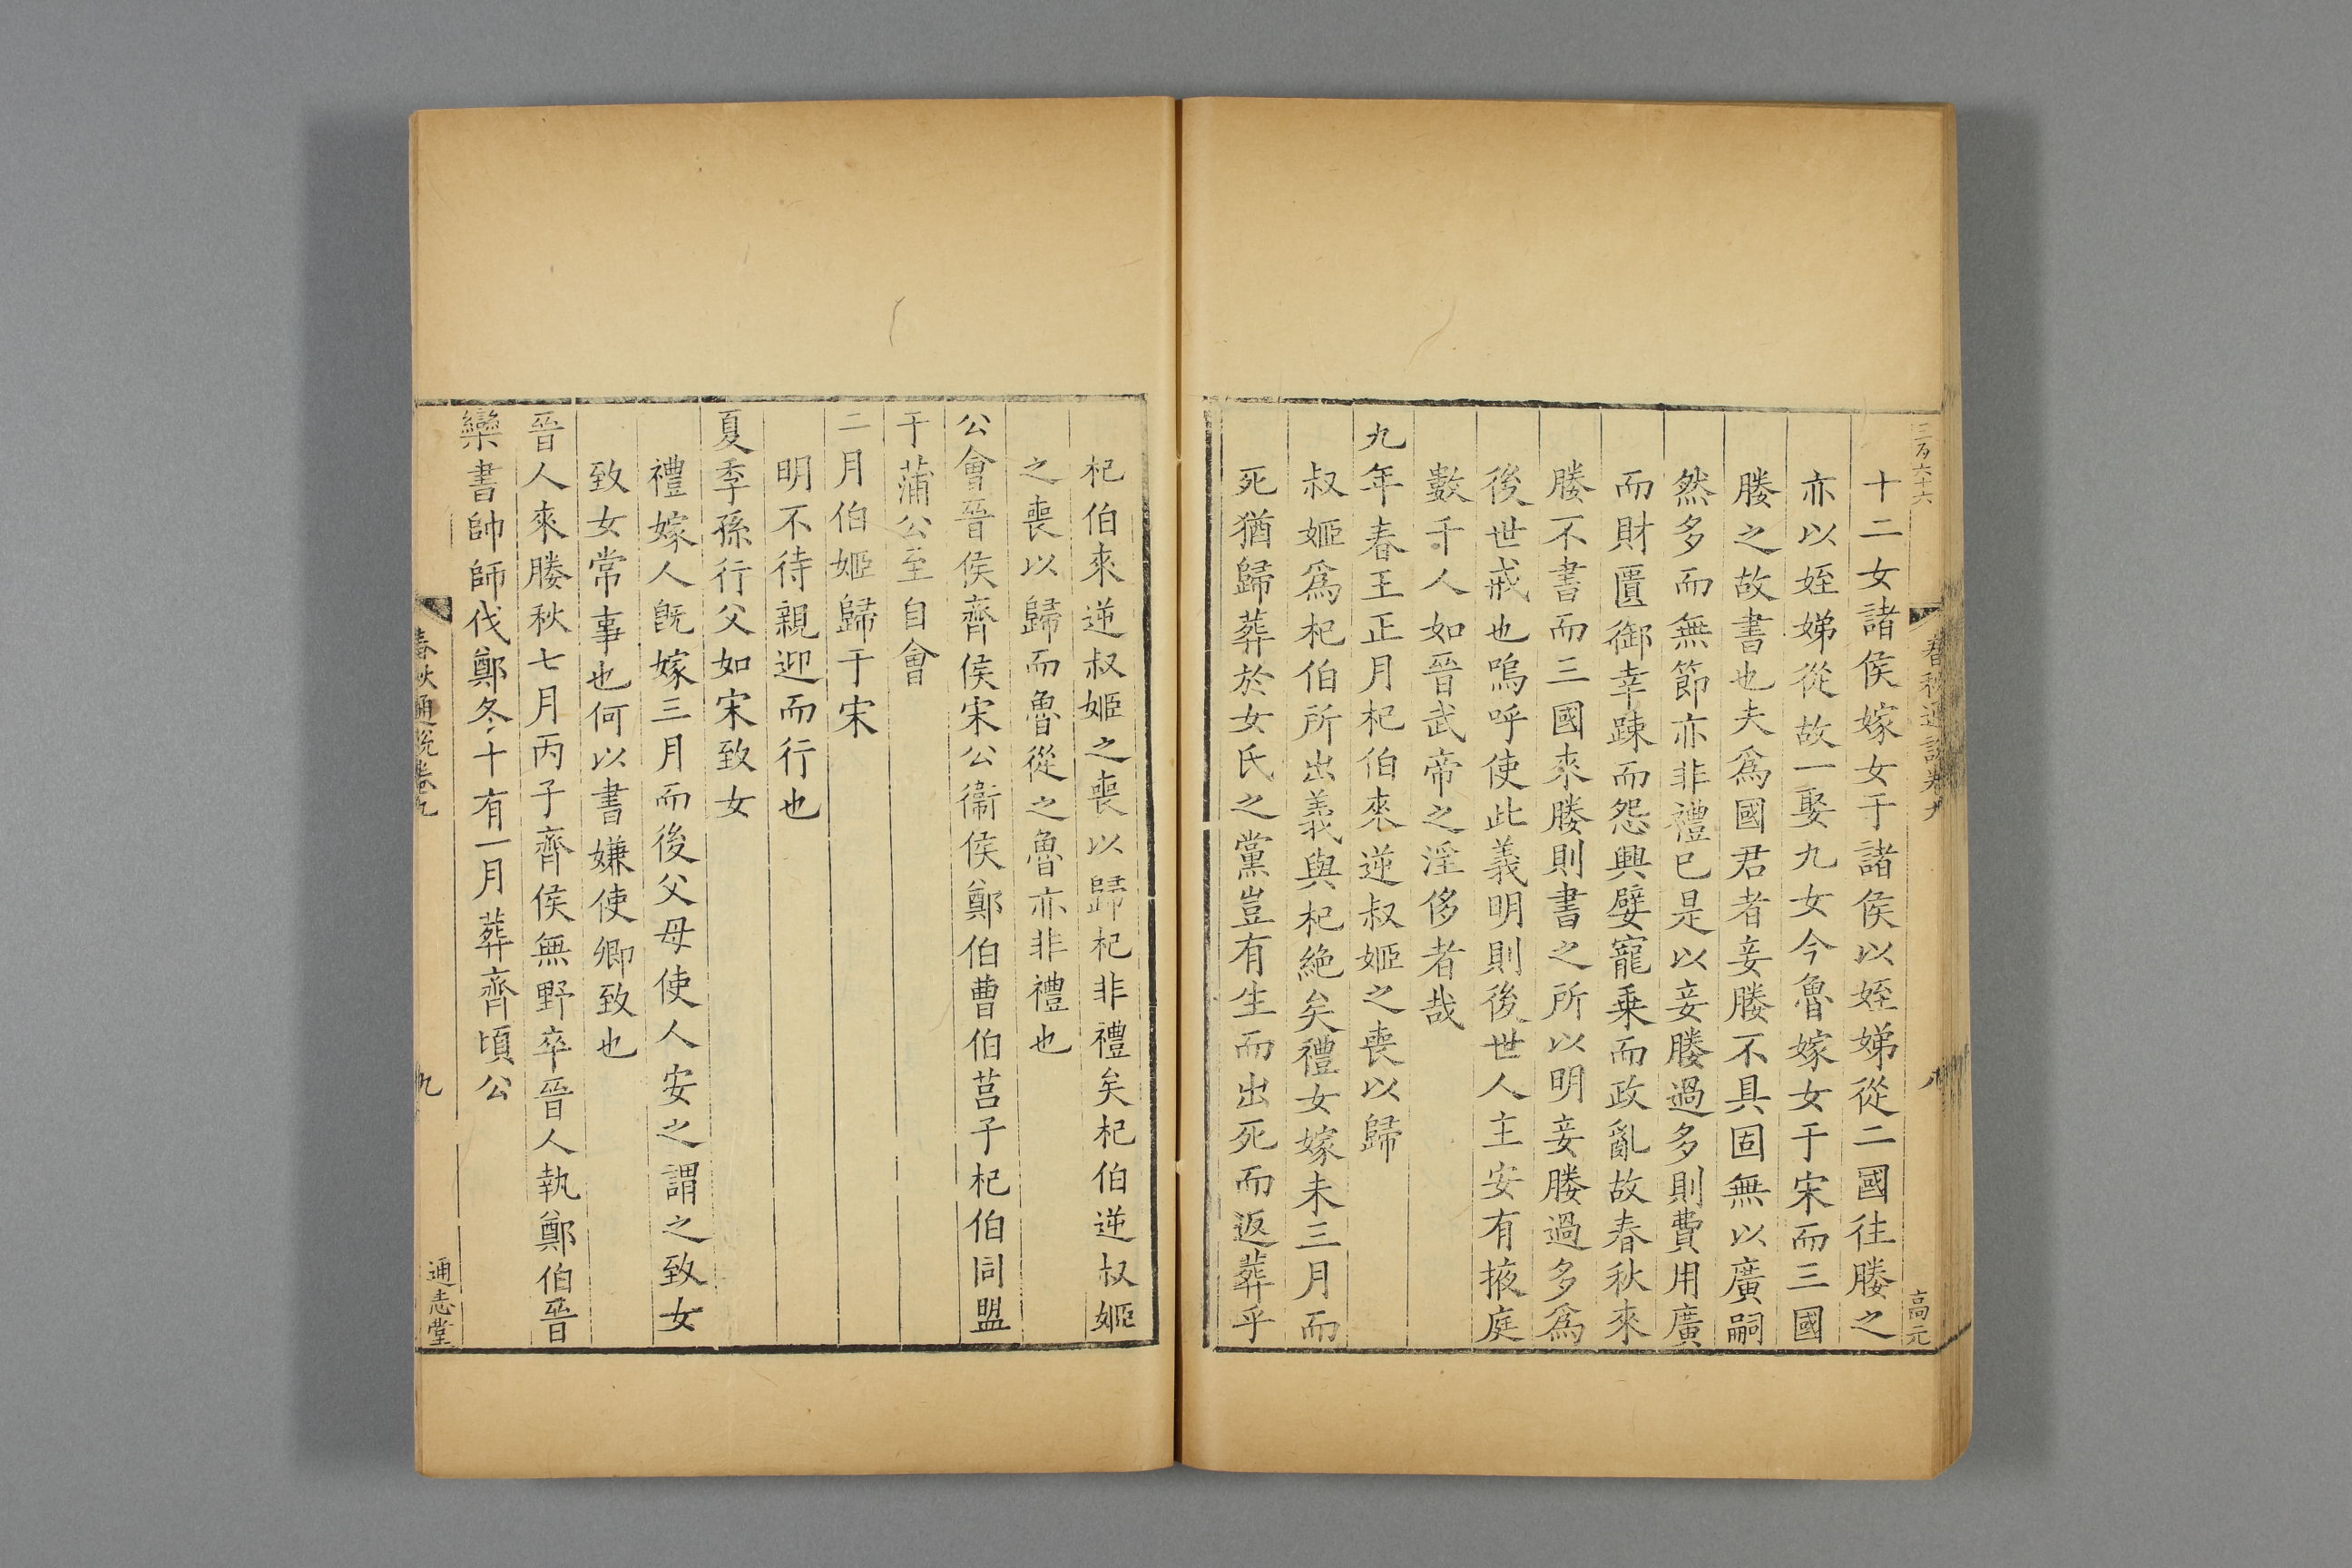 三百六十六
春秋通說卷九
八
高元
十二女諸侯嫁女于諸侯以姪娣從二國往媵之
亦以姪娣從故一娶九女今魯嫁女于宋而三國
媵之故書也夫爲國君者妾媵不具固無以廣嗣
然多而無節亦非禮已是以妾媵過多則費用廣
而財匱御幸踈而怨興嬖寵乗而政亂故春秋來
媵不書而三國來媵則書之所以明妾媵過多爲
後世戒也嗚呼使此義明則後世人主安有掖庭
數千人如晉武帝之淫侈者哉
九年春王正月杞伯來逆叔姬之喪以歸
叔姬爲杞伯所出義與杞絶矣禮女嫁未三月而
死猶歸葬於女氏之黨豈有生而出死而返葬乎
杞伯來逆叔姬之喪以歸杞非禮矣杞伯逆叔姬
之喪以歸而魯從之魯亦非禮也
公會晉侯齊侯宋公衞侯鄭伯曹伯莒子杞伯同盟
于蒲公至自會
二月伯姬歸于宋
明不待親迎而行也
夏季孫行父如宋致女
禮嫁人旣嫁三月而後父母使人安之謂之致女
致女常事也何以書嫌使卿致也
晉人來媵秋七月丙子齊侯無野卒晉人執鄭伯晉
欒書帥師伐鄭冬十有一月葬齊頃公
春秋通說卷九
九
通志堂